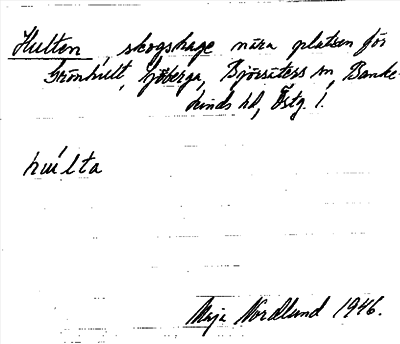 Hulten, skogshage nära platsen för
Grönhult, Göberga, Björsäters sn, Banke-
kinds hd, Östg. l.
huílta
Maja Nordlund 1946.